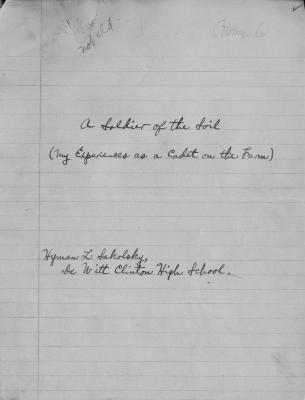 not cl'd.
A Soldier of the Soil
(My Experiences as a Cadet on the Farm)
Hyman L. Sakolsky,
De Witt Clinton High School.